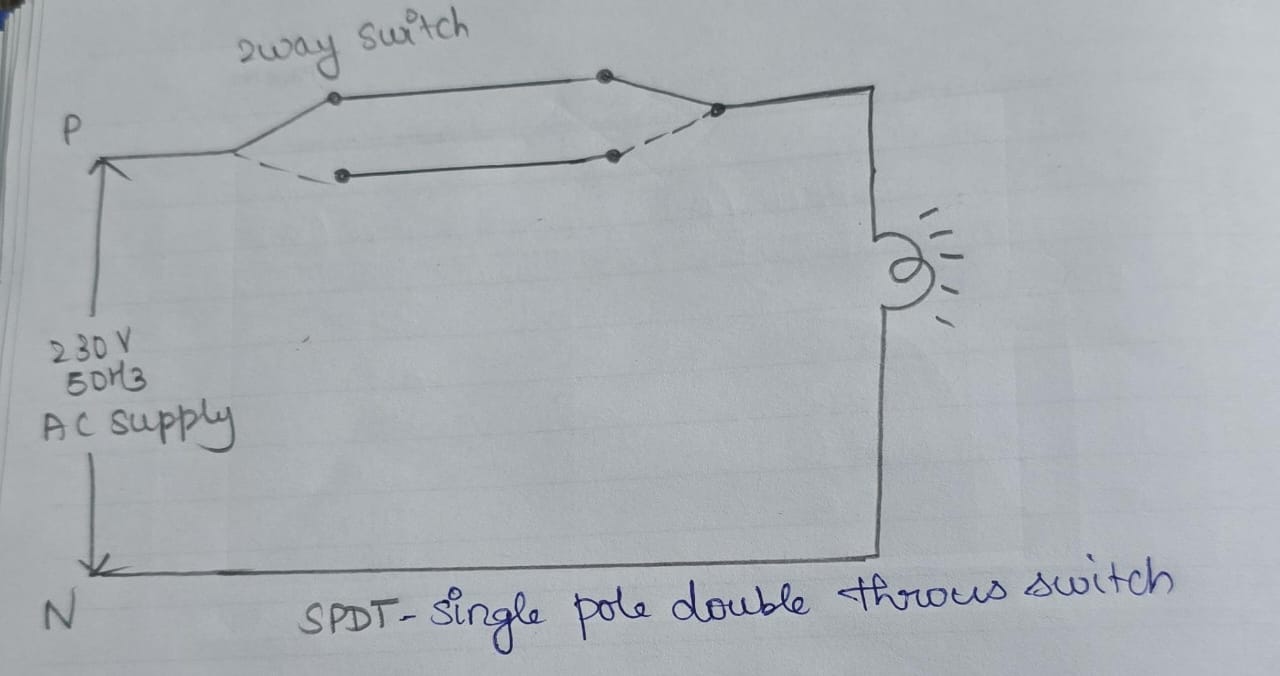 2way switch
P
230V
50Hz
AC supply
N
SPDT- Single pole double throws switch